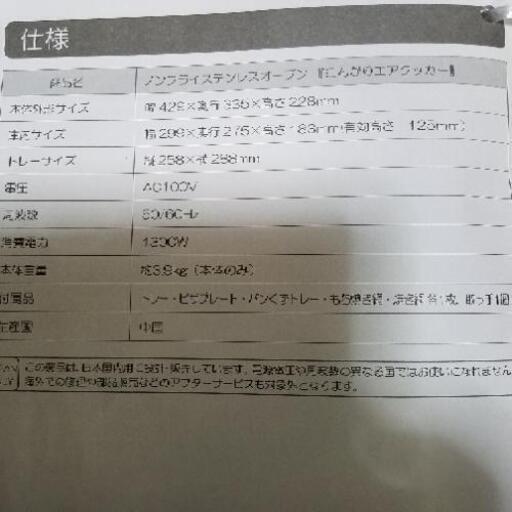 仕様
商品名 ノンフライステンレスオーブン 『こんがりエアクッカー』
本体外形サイズ 幅429×奥行335×高さ228mm
庫内サイズ 幅299×奥行275×高さ183mm(有効高さ 125mm)
トレーサイズ 縦258×横288mm
電圧 AC100V
周波数 50/60Hz
消費電力 1300W
本体重量 約3.9kg (本体のみ)
付属品 トレー・ピザプレート・パンくずトレー・もち焼き網・焼き網 各1枚、取っ手1個
生産国 中国
この製品は、日本国内用に設計・販売しています。電源電圧や周波数の異なる国ではお使いになれません
海外での修理や部品販売などのアフターサービスも対象外となります。